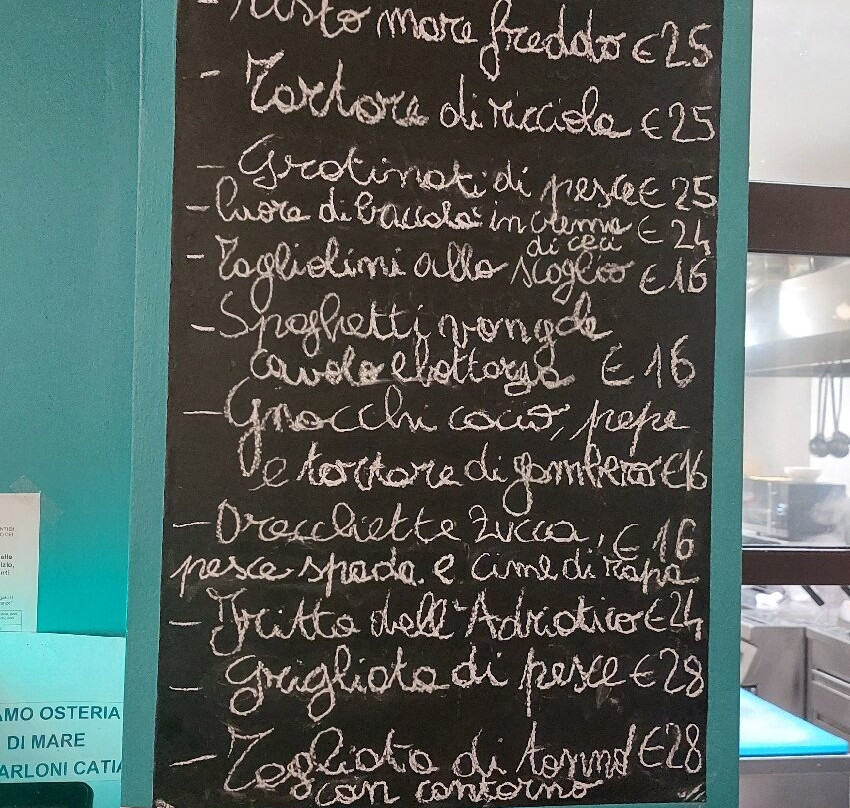 - Misto mare freddo €25
- Tartare di ricciola €25
- Gratinati di pesce €25
- Cuore di baccalà in crema €24
di ceci
- Tagliolini allo scoglio €16
- Spaghetti vongole
cavolo e bottarga €16
- Gnocchi cacio, pepe
e tartare di gambero €16
- Orecchiette zucca, €16
pesce spada e cime di rapa
- Fritto dell'Adriatico €24
- Grigliata di pesce €28
- Tagliata di tonno €28
con contorno
AMO OSTERIA
DI MARE
ARLONI CATIA